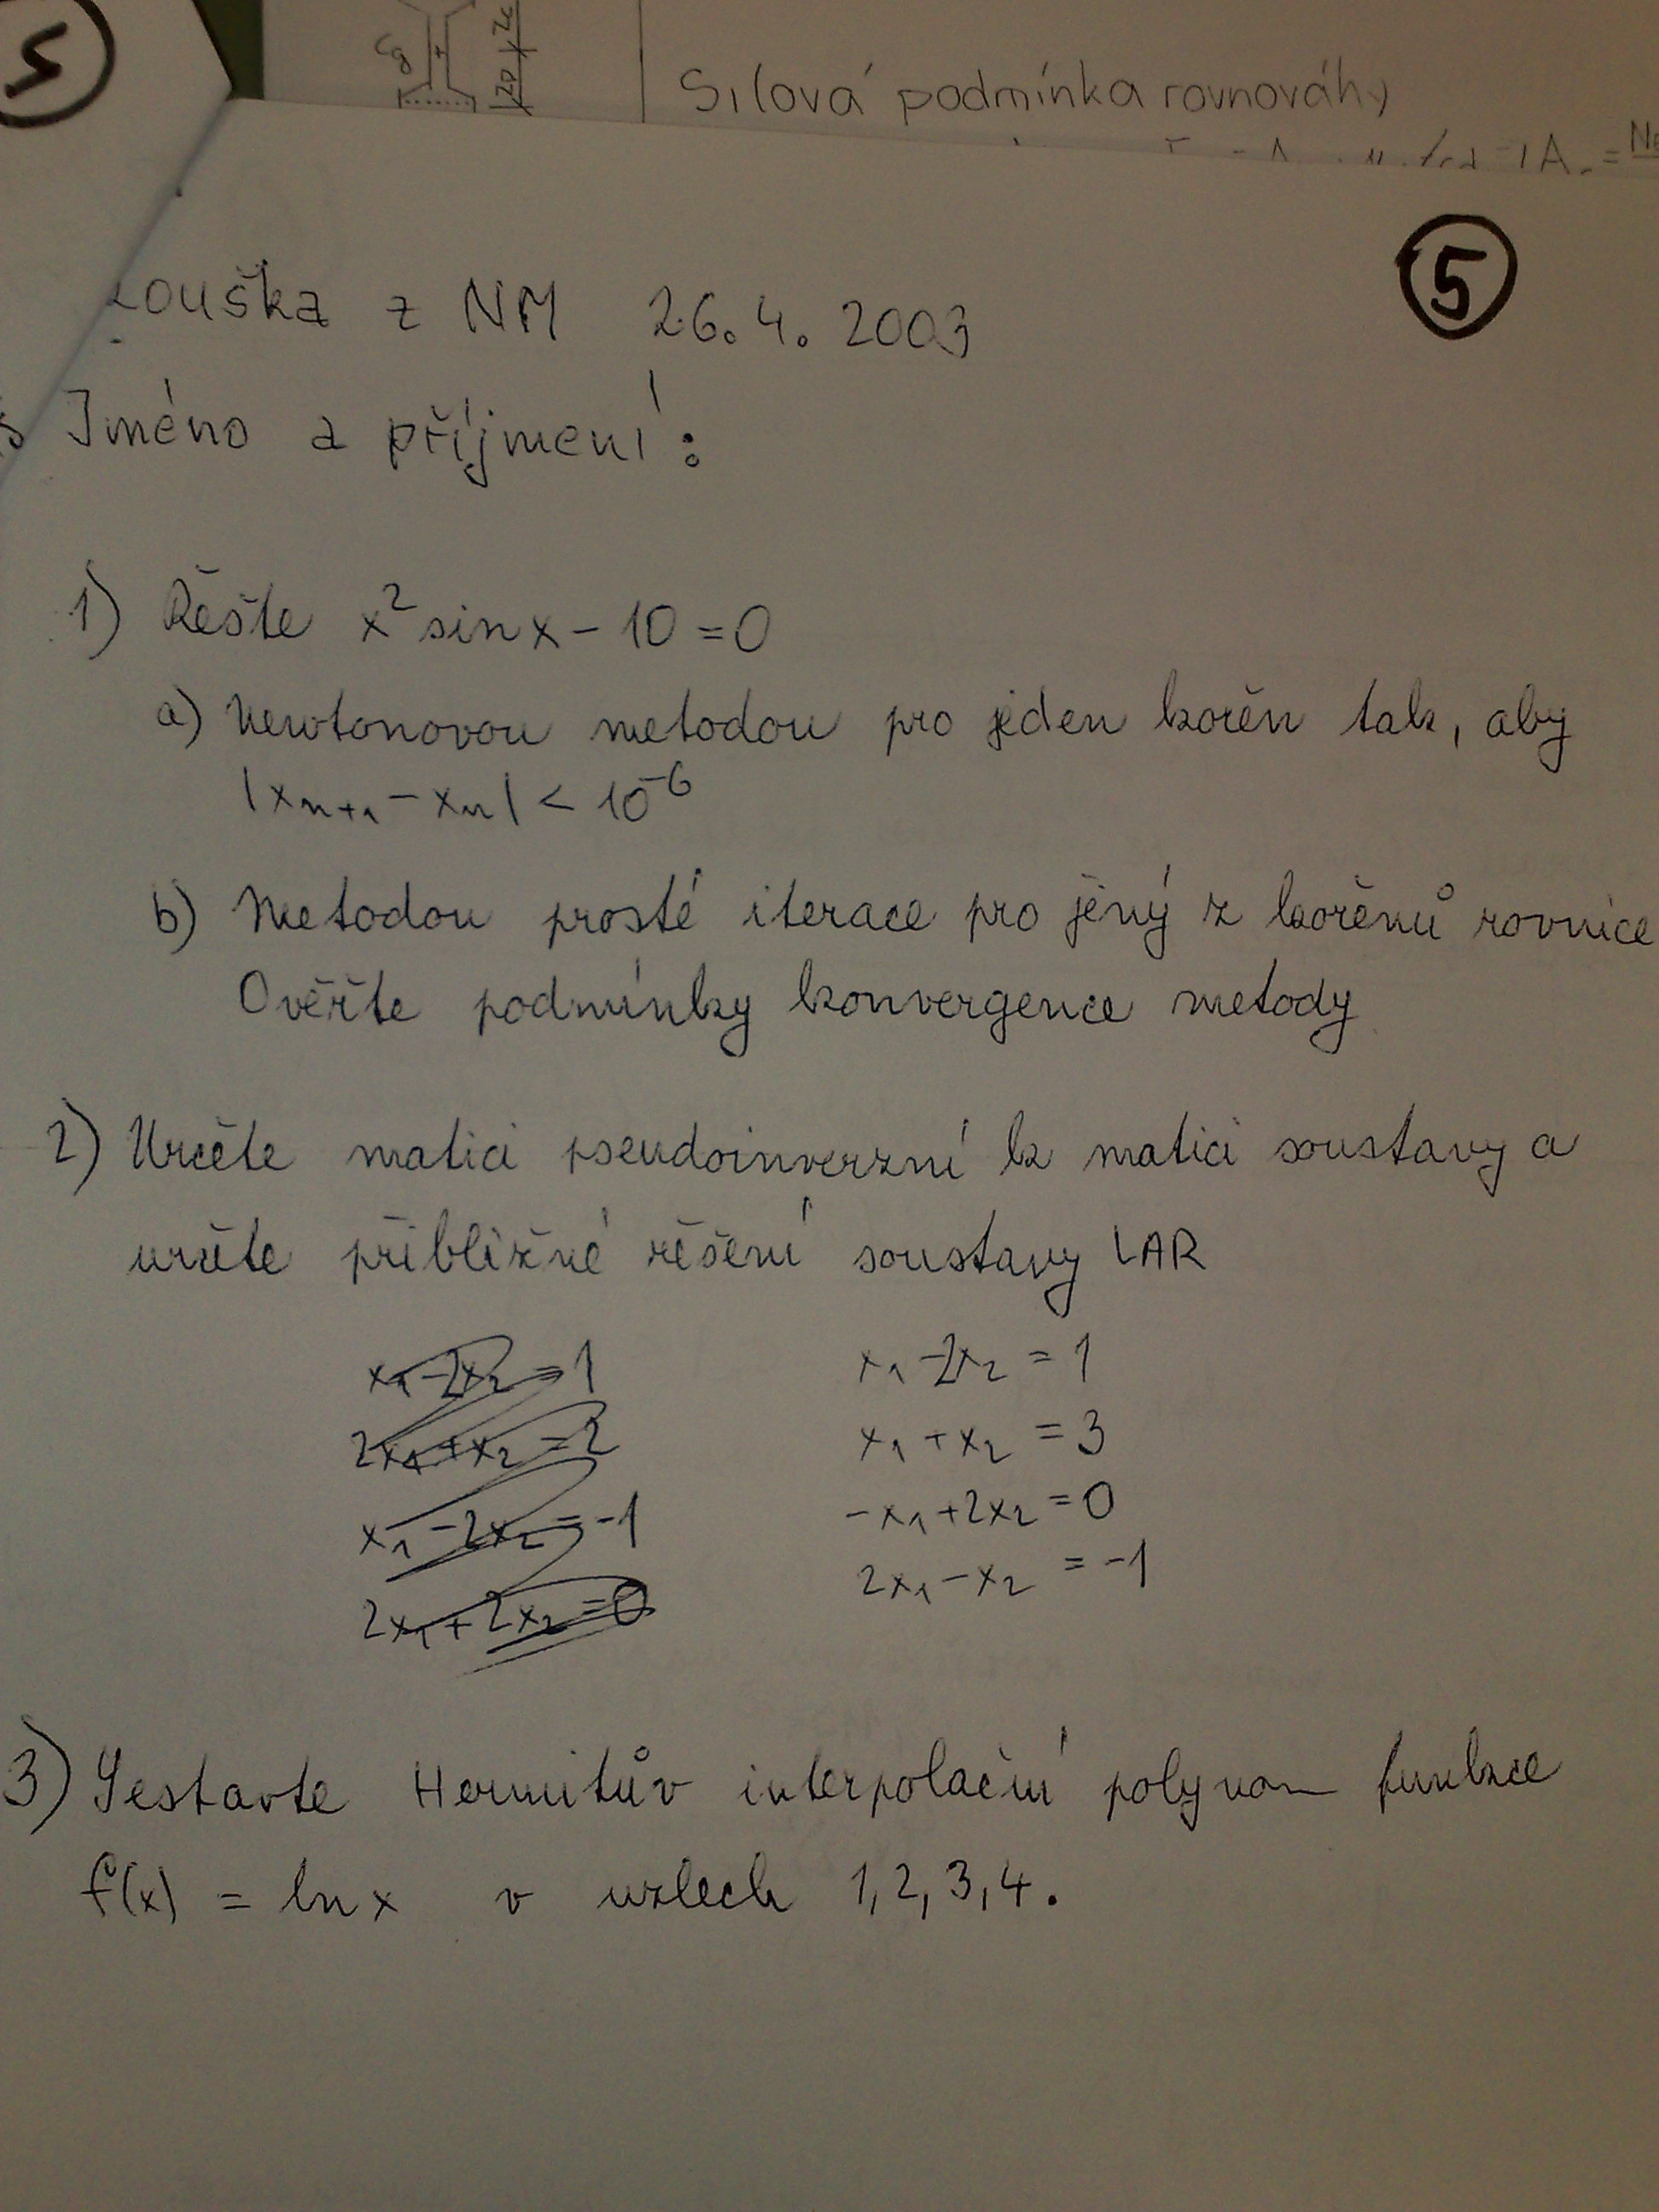 5
Silová podmínka rovnováhy
5
zouška z NM 26.4.2003
Jméno a příjmení:
1) Řešte x² sin x - 10 = 0
a) Newtonovou metodou pro jeden kořen tak, aby
|xₙ₊₁ - xₙ| < 10⁻⁶
b) Metodou prosté iterace pro jený z kořenů rovnice
Ověřte podmínky konvergence metody
2) Určete matici pseudoinverzní k matici soustavy a
určete přibližné řešení soustavy LAR
x₁ - 2x₂ = 1
2x₁ + x₂ = 2
x₁ - 2x₂ = -1
2x₁ + 2x₂ = 0
x₁ - 2x₂ = 1
x₁ + x₂ = 3
-x₁ + 2x₂ = 0
2x₁ - x₂ = -1
3) Sestavte Hermitův interpolační polynom funkce
f(x) = ln x v uzlech 1, 2, 3, 4.